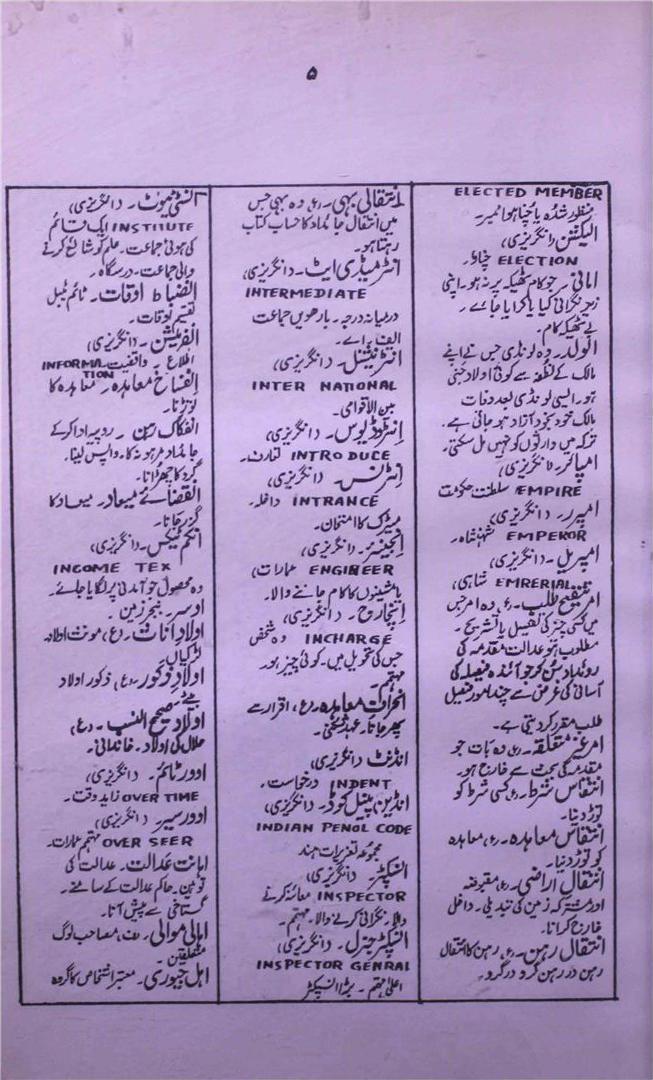 ۵
ELECTED MEMBER
منظور شدہ یا چنا ہوا ممبر۔
الیکشن (انگریزی)
ELECTION چناؤ۔
امانی۔ جو کام ٹھیکہ پر نہ ہو۔ اپنی
زیر نگرانی کیا یا کرایا جائے۔
بے ٹھیکہ کام۔
الولد۔ وہ لونڈی جس نے اپنے
مالک کے نطفہ سے کوئی اولاد جنی
ہو۔ ایسی لونڈی بعد وفات
مالک خود بخود آزاد ہو جاتی ہے۔
ترکہ میں وارثوں کو نہیں مل سکتی۔
امپائر۔ (انگریزی)
EMPIRE سلطنت حکومت
امپرر۔ (انگریزی)
EMPEROR شہنشاہ۔
امپریل۔ (انگریزی)
EMRERIAL شاہی
امر تنقیح طلب۔ (ع) وہ امر جس
میں کسی چیز کی تفصیل یا تشریح۔
مطلوب ہو عدالت مقدمہ کی
روئداد سن کر جو آئندہ فیصلہ کی
آسانی کی غرض سے چند امور تفصیل
طلب مقرر کر دیتی ہے۔
امر غیر متعلقہ۔ (ع) وہ بات جو
مقدمہ کی بحث سے خارج ہو۔
انتقاس شرط۔ (ع) کسی شرط کو
توڑ دینا۔
انتقاس معاہدہ۔ (ع) معاہدہ
کو توڑ دینا۔
انتقال اراضی۔ (ع) مقبوضہ
اور مشترکہ زمین کی تبدیلی۔ داخل
خارج کرانا۔
انتقال رہن۔ (ع) رہن کا انتقال
رہن در رہن گرو در گرو۔
انتقالی بہی۔ (ع) وہ بہی جس
میں انتقال جائداد کا حساب کتاب
رہتا ہو۔
انٹرمیڈی ایٹ۔ (انگریزی)
INTERMEDIATE
درمیانہ درجہ۔ بارھویں جماعت
الف اے۔
انٹرنیشنل۔ (انگریزی)
INTER NATIONAL
بین الاقوامی۔
انٹروڈیوس۔ (انگریزی)
INTRO DUCE تعارف۔
انٹرنس۔ (انگریزی)
INTRANCE داخلہ۔
میٹرک کا امتحان۔
انجینئر۔ (انگریزی)
ENGINEER عمارات
یا مشینوں کا کام جاننے والا۔
انچارج۔ (انگریزی)
INCHARGE وہ شخص
جس کی تحویل میں۔ کوئی چیز ہو۔
مہتمم۔
انحراف معاہدہ۔ (ع) اقرار سے
پھر جانا۔ عہد شکنی۔
انڈنٹ (انگریزی)
INDENT درخواست۔
انڈین پینل کوڈ۔ (انگریزی)
INDIAN PENOL CODE
مجموعہ تعزیرات ہند
انسپکٹر۔ (انگریزی)
INSPECTOR معائنہ کرنے
والا۔ نگرانی کرنے والا۔ مہتمم۔
انسپکٹر جنرل۔ (انگریزی)
INSPECTOR GENRAL
اعلیٰ مہتمم۔ بڑا انسپکٹر
انسٹی ٹیوٹ۔ (انگریزی)
INSTITUTE ایک قائم
کی ہوئی جماعت۔ علم کو شائع کرنے
والی جماعت۔ درسگاہ۔
انضباط اوقات۔ ٹائم ٹیبل
تقسیم اوقات۔
انفرمیشن۔ (انگریزی)
اطلاع۔ واقفیت INFORMA-
TION
انفساخ معاہدہ۔ معاہدہ کا
توڑنا۔
انفکاک رہن۔ روپیہ ادا کر کے
جائداد مرہونہ کا۔ واپس لینا۔
گرو کا چھڑانا۔
انقضائے میعاد۔ میعاد کا
گزر جانا۔
انکم ٹیکس۔ (انگریزی)
INCOME TEX
وہ محصول جو آمدنی پر لگایا جائے۔
اوسر۔ بنجر زمین۔
اولاد اناث۔ (ع) مونث اولاد
لڑکیاں۔
اولاد ذکور۔ (ع) ذکور اولاد
بیٹے۔
اولاد صحیح النسب۔ (ع)
حلال کی اولاد۔ خاندانی۔
اوور ٹائم۔ (انگریزی)
OVER TIME زاید وقت۔
اوورسیر۔ (انگریزی)
OVER SEER مہتمم عمارات۔
اہانت عدالت۔ عدالت کی
توہین۔ حاکم عدالت کے سامنے۔
گستاخی سے پیش آنا۔
اہالی موالی۔ (ف) مصاحب لوگ
متعلقین۔
اہل جیوری۔ معتبر اشخاص کا گروہ